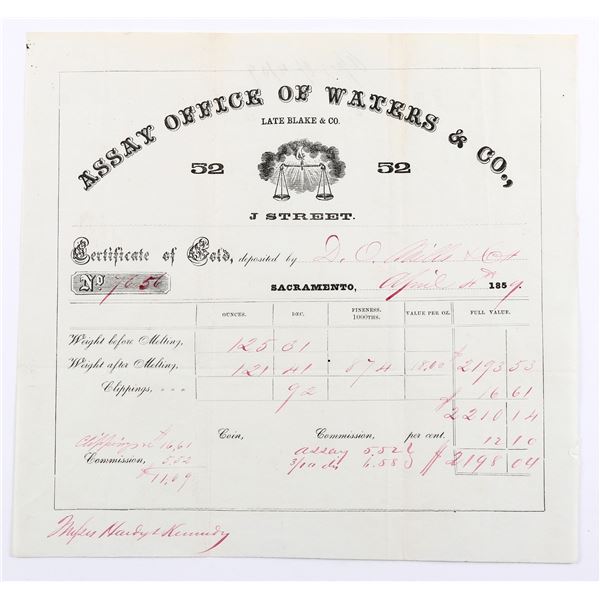 ASSAY OFFICE OF WATERS & CO.,
LATE BLAKE & CO.
52 52
J STREET.
Certificate of Gold, deposited by D. O. Mills & Co
No 7656 SACRAMENTO, April 4th 1859.
OUNCES. DEC. FINENESS. 1000THS. VALUE PER OZ. FULL VALUE.
Weight before Melting, 125 31
Weight after Melting, 121 41 874 18.06 $2193 53
Clippings, 92 $ 16 61
2210 14
Coin, Commission, per cent. 12 10
Clippings $16,61 assay 5,52
Commission, 5,52 6.58 $2198 04
$11,09
Messrs Hardy & Kennedy